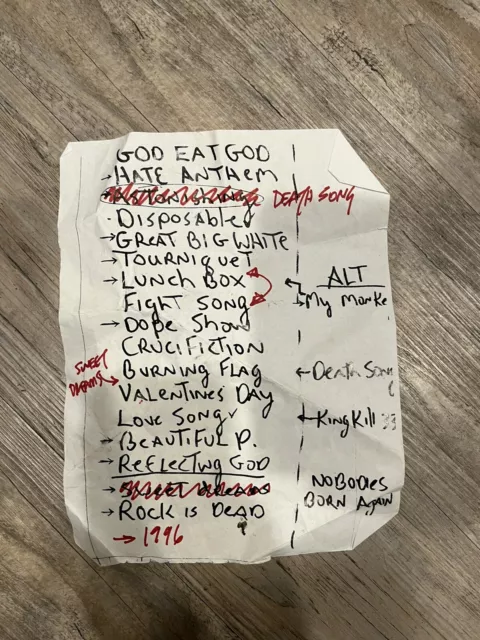 GOD EAT GOD
→ HATE ANTHEM
DEATH SONG
· Disposable
→ GREAT BIG WHITE
→ TOURNIQUET
→ LUNCH BOX
Fight SONG
→ DOPE Show
CRUCIFICTION
BURNING FLAG
SWEET DREAMS →
VALENTINES DAY
LOVE SONG ✓
→ BEAUTIFUL P.
→ REFLECTING GOD
→ SWEET DREAMS
→ ROCK is DEAD
→ 1996
ALT
My Monke
← Death Son
← King Kill 33
NOBODIES
BORN AgAiN